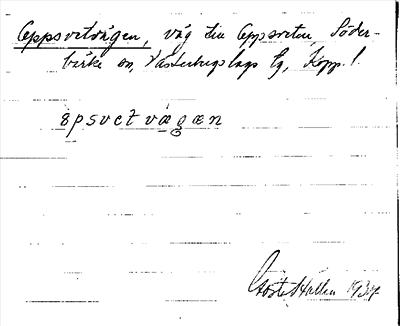 Oppsvetvägen, väg till Oppsveten, Söder-
bärke sn, Västerbergslags tg, Kopp. l.
öpsvetvægæn
Gösta Hallin 1934